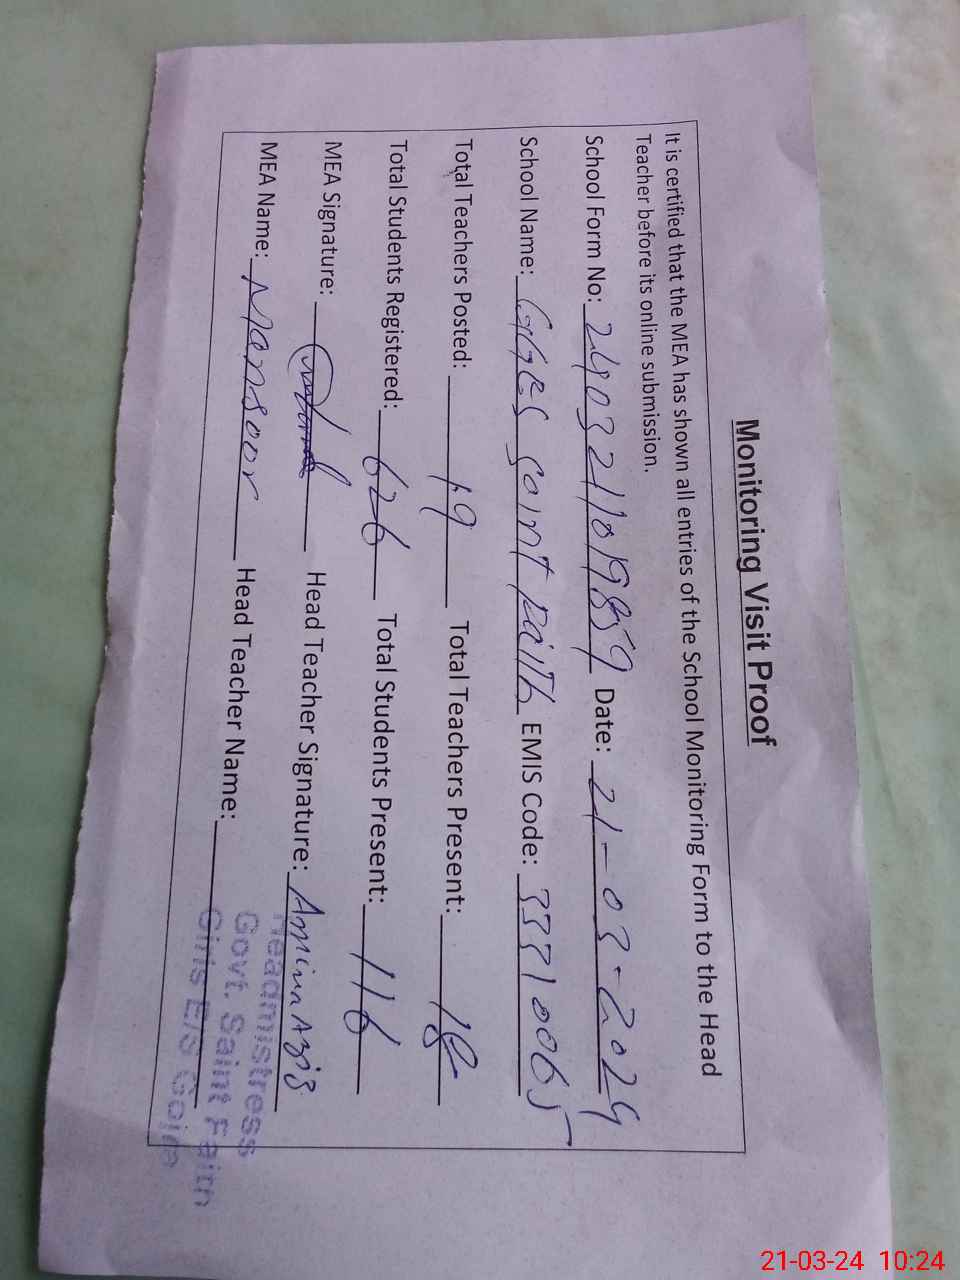 Monitoring Visit Proof
It is certified that the MEA has shown all entries of the School Monitoring Form to the Head
Teacher before its online submission.
School Form No: 2403211019859 Date: 21-03-2024
School Name: GGES saint faith EMIS Code: 33710065
Total Teachers Posted: 19 Total Teachers Present: 18
Total Students Registered: 626 Total Students Present: 116
MEA Signature: Head Teacher Signature: Amina Aziz
MEA Name: Mansoor Head Teacher Name:
Headmistress
Govt. Saint Faith
Girls E/S Gojra
21-03-24 10:24